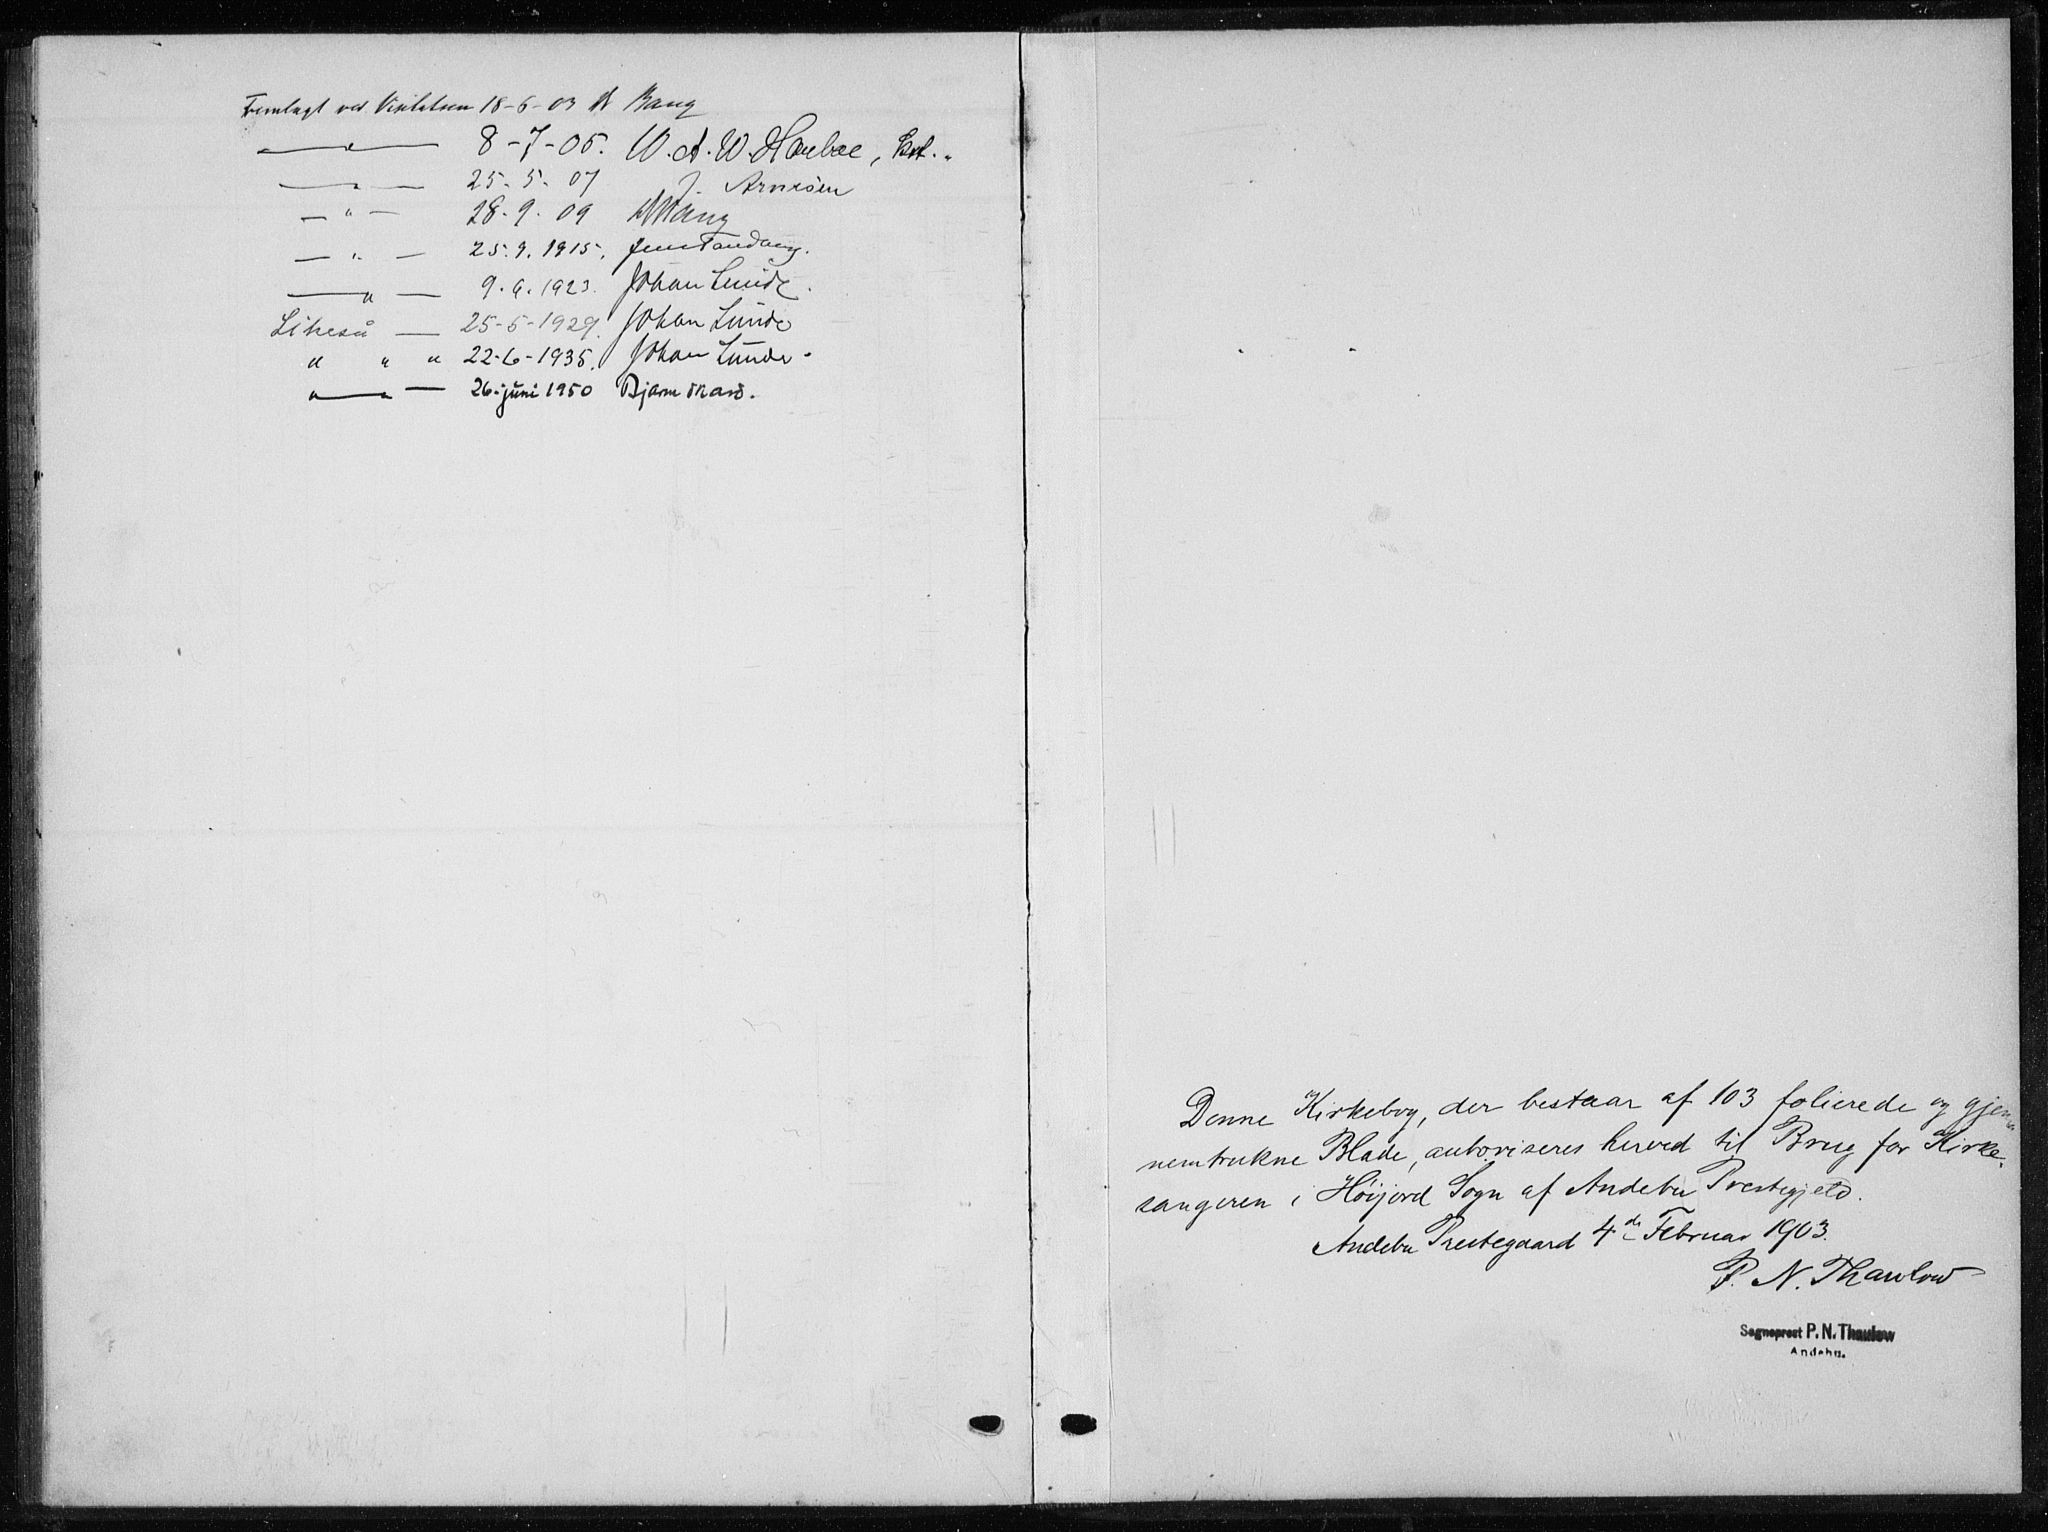 Fremlagt ved Visitatsen 18-6-03 A Bang
— " — 8-7-05. W. A. W. Haubae,
— " — 25-5-07 J. Arnesen
— " — 28-9-09 A Bang
— " — 25.9.1915. Jens Tandberg.
— " — 9.9.1923. Johan Lunde.
Likeså — 25-5-1929. Johan Lunde
" " " 22-6-1935. Johan Lunde.
" — " — 26-juni 1950 Bjarne Skard.
Denne Kirkebog, der bestaar af 103 folierede og gjen-
nemtrukne Blade, autoriseres herved til Brug for Kirke-
sangeren i Høijord Sogn af Andebu Prestegjeld.
Andebu Prestegaard 4de Februar 1903.
P. N. Thaulow
Sogneprest P. N. Thaulow
Andebu.